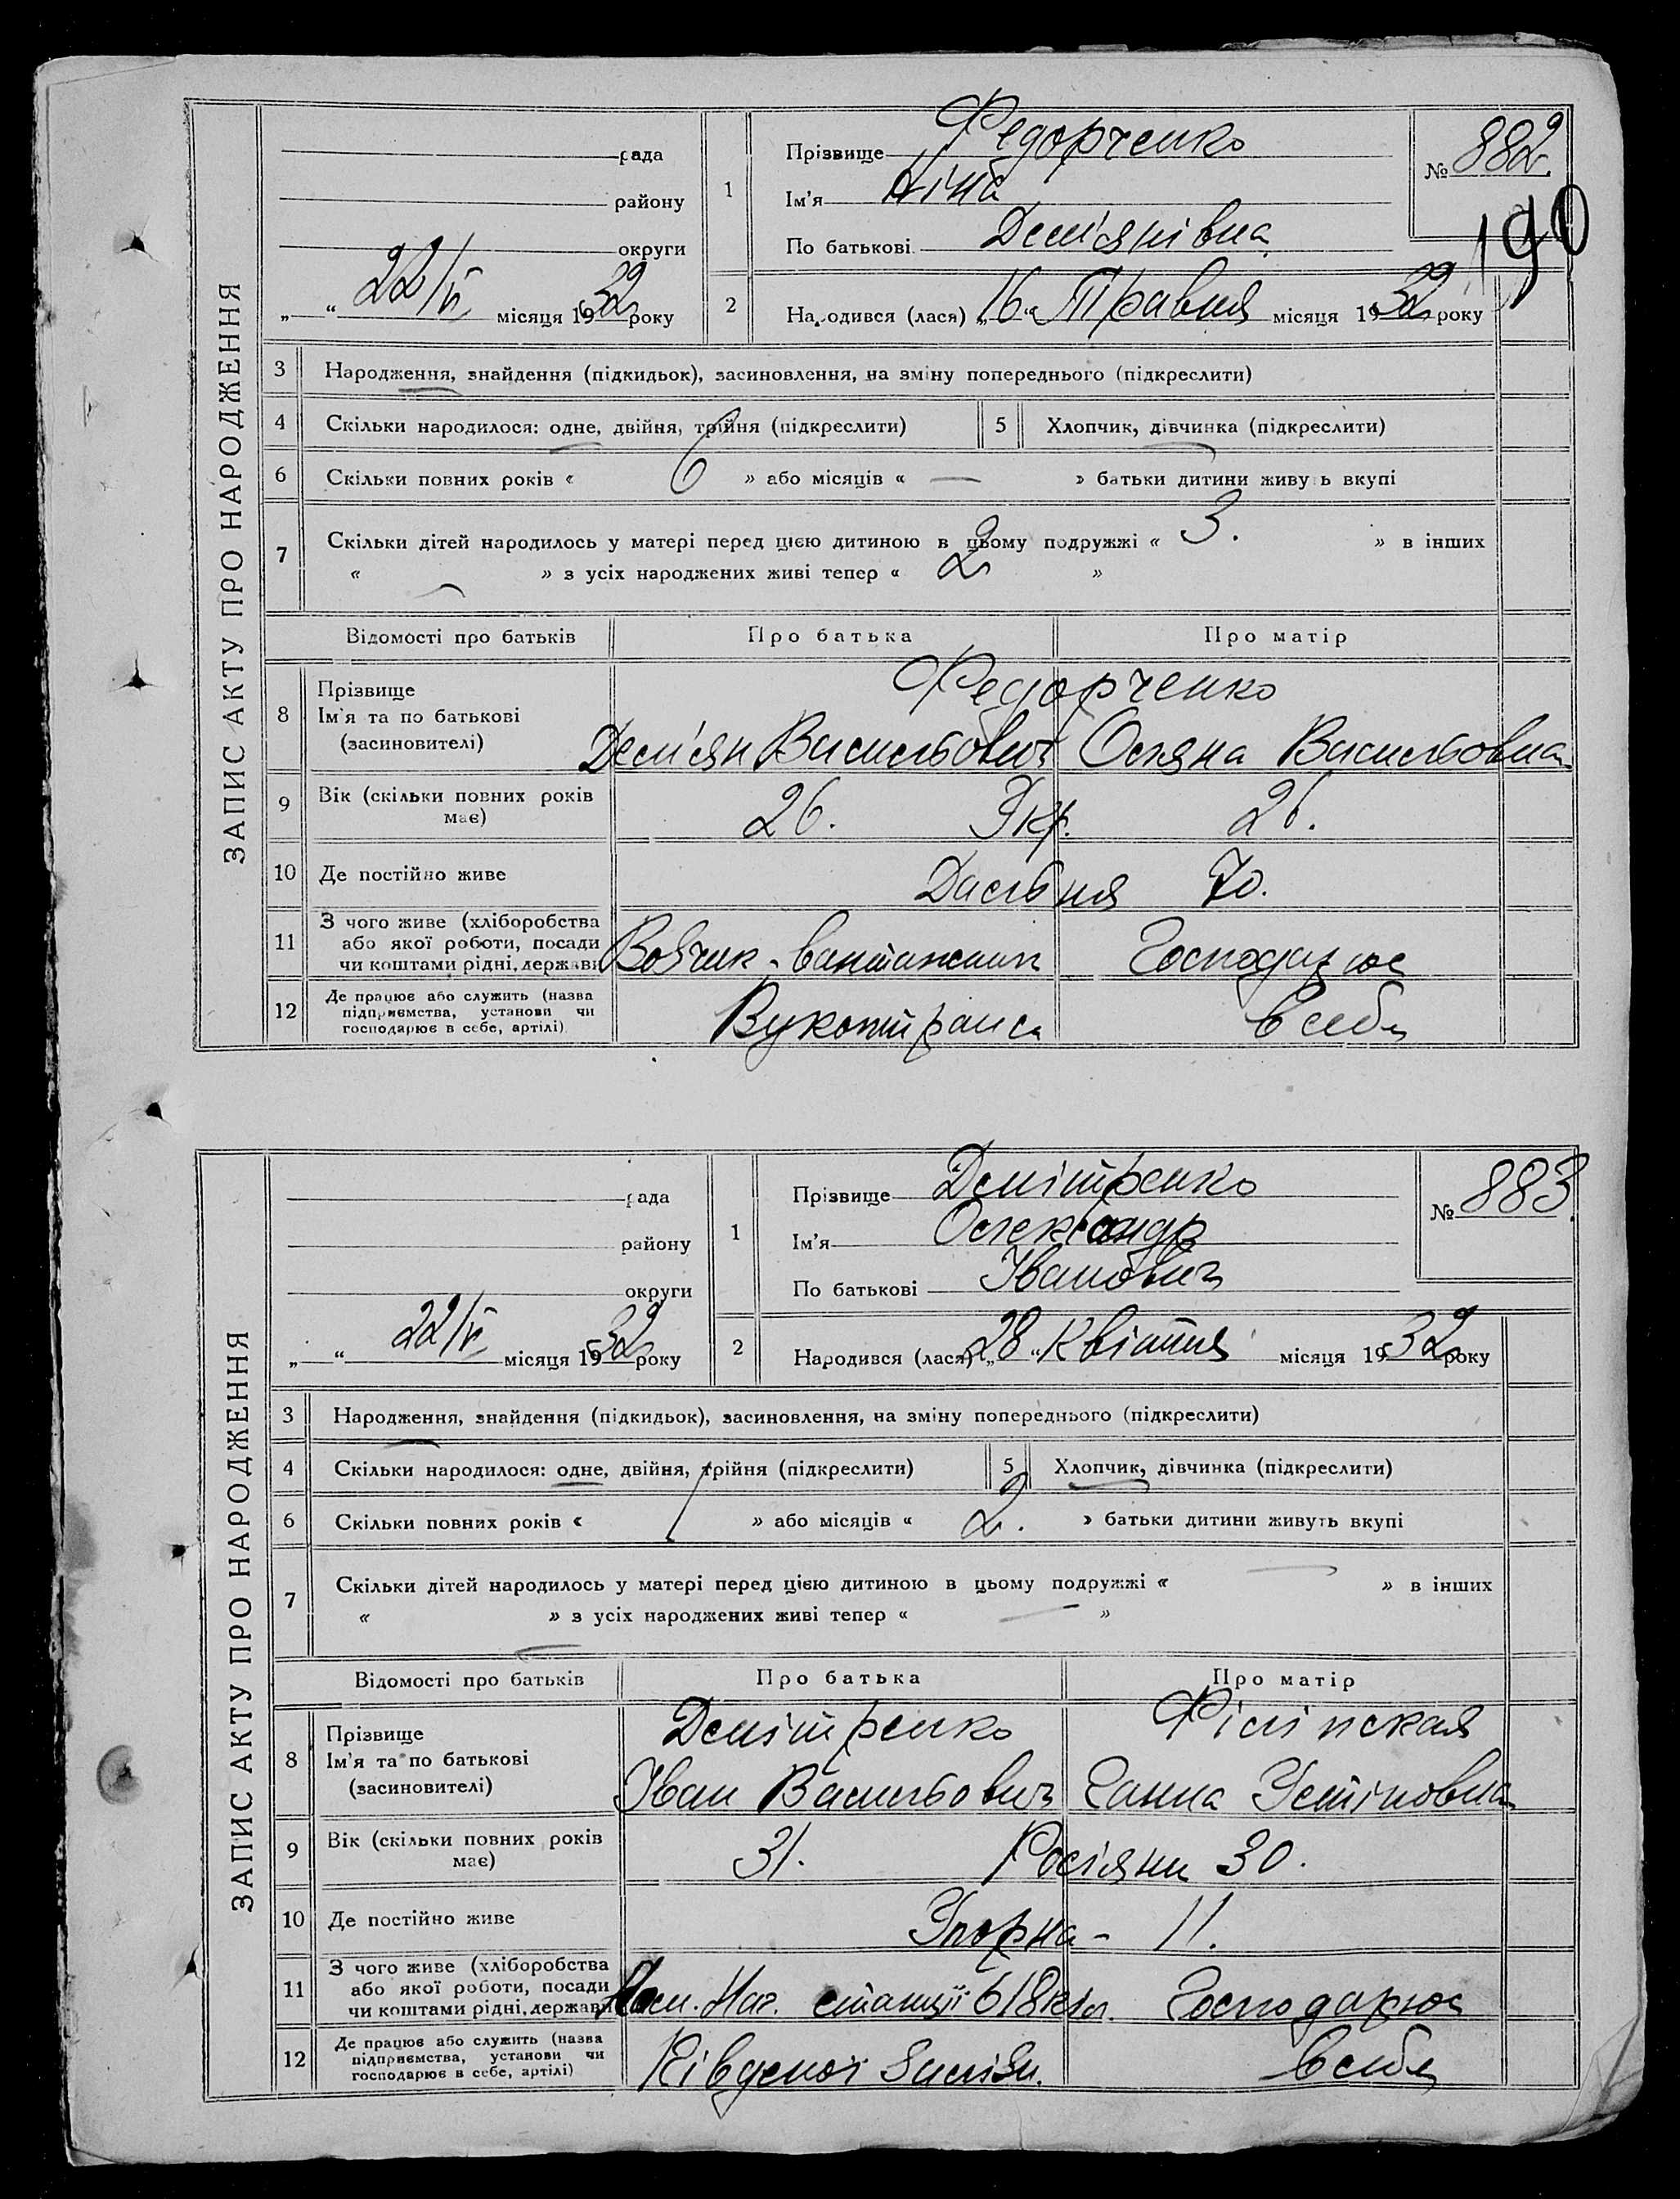 ЗАПИС АКТУ ПРО НАРОДЖЕННЯ
рада
району
округи
„ “ 22/VI місяця 1932 року
1
Прізвище Федорченко
Ім'я Ніна
По батькові Дем'янівна
№ 882.
190
2
Народився (лася) „16“ Травня місяця 1932 року
3 Народження, знайдення (підкидьок), засиновлення, на зміну попереднього (підкреслити)
4 Скільки народилося: одне, двійня, трійня (підкреслити) 5 Хлопчик, дівчинка (підкреслити)
6 Скільки повних років « 6 » або місяців « — » батьки дитини живуть вкупі
7 Скільки дітей народилось у матері перед цією дитиною в цьому подружжі « 3. » в інших
« — » з усіх народжених живі тепер « 2 »
Відомості про батьків Про батька Про матір
8 Прізвище
Ім'я та по батькові
(засиновителі)
Федорченко
Дем'ян Васильович Оляна Васильовна
9 Вік (скільки повних років має) 26. Укр. 26.
10 Де постійно живе Дальня 70.
11 З чого живе (хліборобства
або якої роботи, посади
чи коштами рідні, держави
вантажник Господарює
12 Де працює або служить (назва
підприємства, установи чи
господарює в себе, артілі)
Вукопітранса в себе
ЗАПИС АКТУ ПРО НАРОДЖЕННЯ
рада
району
округи
„ “ 22/VI місяця 1932 року
1
Прізвище Демітренко
Ім'я Олександр
По батькові Іванович
№ 883.
2
Народився (лася) „28“ Квітня місяця 1932 року
3 Народження, знайдення (підкидьок), засиновлення, на зміну попереднього (підкреслити)
4 Скільки народилося: одне, двійня, трійня (підкреслити) 5 Хлопчик, дівчинка (підкреслити)
6 Скільки повних років « 1 » або місяців « 2. » батьки дитини живуть вкупі
7 Скільки дітей народилось у матері перед цією дитиною в цьому подружжі « — » в інших
« — » з усіх народжених живі тепер « — »
Відомості про батьків Про батька Про матір
8 Прізвище
Ім'я та по батькові
(засиновителі)
Демітренко
Іван Васильович Ганна Устіновна
9 Вік (скільки повних років має) 31. Росіяни 30.
10 Де постійно живе Упорна - 11.
11 З чого живе (хліборобства
або якої роботи, посади
чи коштами рідні, держави
Нач. станції 618 клм. Господарює
12 Де працює або служить (назва
підприємства, установи чи
господарює в себе, артілі)
Південої Заліз. в себе